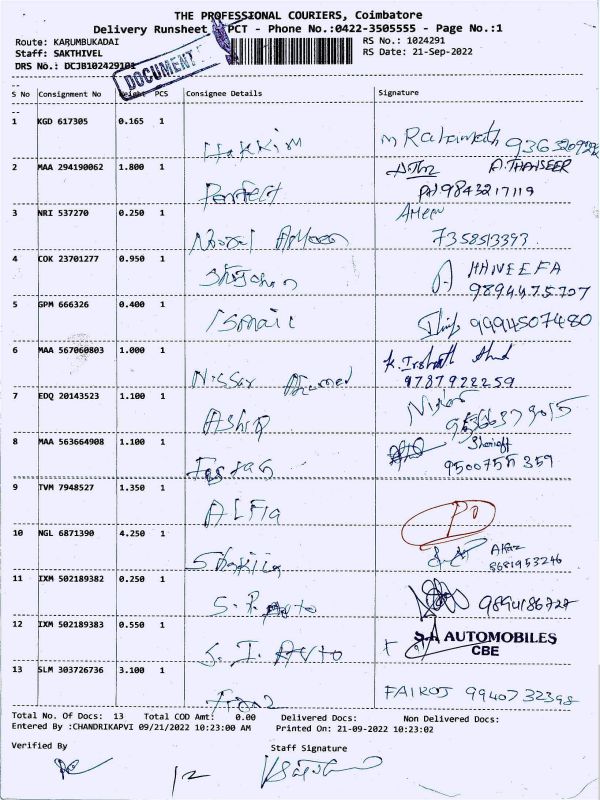 THE PROFESSIONAL COURIERS, Coimbatore
Delivery Runsheet PCT - Phone No.:0422-3505555 - Page No.:1
Route: KARUMBUKADAI RS No.: 1024291
Staff: SAKTHIVEL RS Date: 21-Sep-2022
DRS No.: DCJB102429101
DOCUMENT
S No Consignment No Weight PCS Consignee Details Signature
1 KGD 617305 0.165 1
Hakkim
2 MAA 294190062 1.800 1 A. THANSEER
Perfect 9843217119
3 NRI 537270 0.250 1 Ameen
7358513393
4 COK 23701277 0.950 1 HANEEFA
9894475707
5 GPM 666326 0.400 1
Ismail 9994507480
6 MAA 567060803 1.000 1
Nissar Ahamed 9787922259
7 EDQ 20143523 1.100 1
Ashiq
8 MAA 563664908 1.100 1 Sheriff
9500755359
9 TVM 7948527 1.350 1
Alfia
10 NGL 6871390 4.250 1
8681953246
11 IXM 502189382 0.250 1
S. P. Auto 9894186727
12 IXM 502189383 0.550 1 S.A AUTOMOBILES
CBE
S. I. Auto
13 SLM 303726736 3.100 1 FAIROJ 9940732398
Total No. Of Docs: 13 Total COD Amt: 0.00 Delivered Docs: Non Delivered Docs:
Entered By :CHANDRIKAPVI 09/21/2022 10:23:00 AM Printed On: 21-09-2022 10:23:02
Verified By Staff Signature